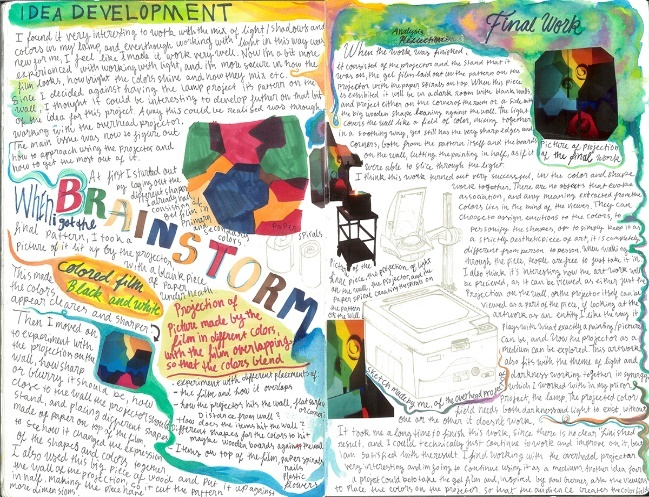 IDEA DEVELOPMENT
I found it very interesting to work with the mix of light/shadows and
colors in my lamp, and eventhough working with light in this way was
new for me, I feel like I made it work very well. Now I'm a bit more
experienced with working with light, and I'm more secure in how the
film looks, how bright the colors shine and how they mix etc.
Since I decided against having the lamp project its pattern on the
wall, I thought it could be interesting to develop further on that bit
of the idea for this project. A way this could be realised was through
working with the overhead projector.
The main issue was now to figure out
how to approach using the projector and
how to get the most out of it.
At first I started out
by laying out the
different shapes
I already had,
consisting of
gel film in
primary
colors
When I got the
BRAINSTORM
final pattern, I took a
picture of it sit up by the projector
with a blank piece
of paper
underneath
This made
the colors
appear clearer and sharper.
colored film
Black and white
PAPER
spirals
Projection of
Picture made by the
film in different colors,
with the film overlapping
so that the colors blend
Then I moved on
to experiment with
the projection on the
wall, how sharp
or blurry it should be, how
close to the wall the projector should
stand, and placing different shapes
made of paper on top of the film
to see how it changed the expression
of the shapes and colors together.
I also used this big piece of wood and put it up against
the wall of the projection, so it cut the pattern
in half, making the piece have
more dimensions.
- experiment with different placements of:
- the film and how it overlaps
- how the projector hits the wall, flat surface
or corner
Distance from wall?
- How does the items hit the wall?
different shapes for the colors to hit
maybe wooden boards against the wall
- Items on top of the film
paper spirals
nails
plastic
flowers
Analysis
Reflections
Final Work
When the work was finished
it consisted of the projector and the stand that it
was on, the gel film laid out in the pattern on the
projector with the paper spirals on top. When this piece
is exhibited it will be in a dark room with blank walls,
and project either on the corner of the room or a flat wall,
the big wooden shape leaning against the wall. The light
covers the wall like a field of color, mixing together
in a soothing way, yet still has the very sharp edges and
corners, both from the pattern itself and the board
on the wall, cutting the painting in half, as if it
were able to slice through the light.
I think this work turned out very successful, in the color and shape
work together. There are no objects that evoke
association, and any meaning extracted from the
colors lies in the mind of the viewer. They can
choose to assign emotions to the colors, to
personify the shapes, or to simply keep it as
a strictly aesthetic piece of art, it's completely
different from person to person. When walking
through the piece, people are free to just take it in.
I also think it's interesting how the art work will
be perceived, as it can be viewed as either just the
projection on the wall, or the projector itself can be
viewed as a part of the piece, if looking at the
artwork as an entity. I like the way it
plays with what exactly a painting/picture
can be, and how the projector as a
medium can be explored. This artwork
also, with the theme of light and
darkness working together in synergy,
which I worked with in my prison
project, the lamp. The projected color
field needs both darkness and light to exist, without
one or the other it doesn't work.
picture of projection
of the final work
Picture of the
final piece, the projection of light
on the wall, the projector, and the
paper spiral creating
the pattern
on the wall
sketch made by me, of the overhead projector
It took me a long time to finish this work, since there is no clear "finished"
result, and I could technically just continue to work and improve on it, but
I am satisfied with the result. I find working with the overhead projector
very interesting and im going to continue using it as a medium. Another idea for
a project could be to take the gel film and, inspired by
to place the colors on the projector, so that the audience creates their own